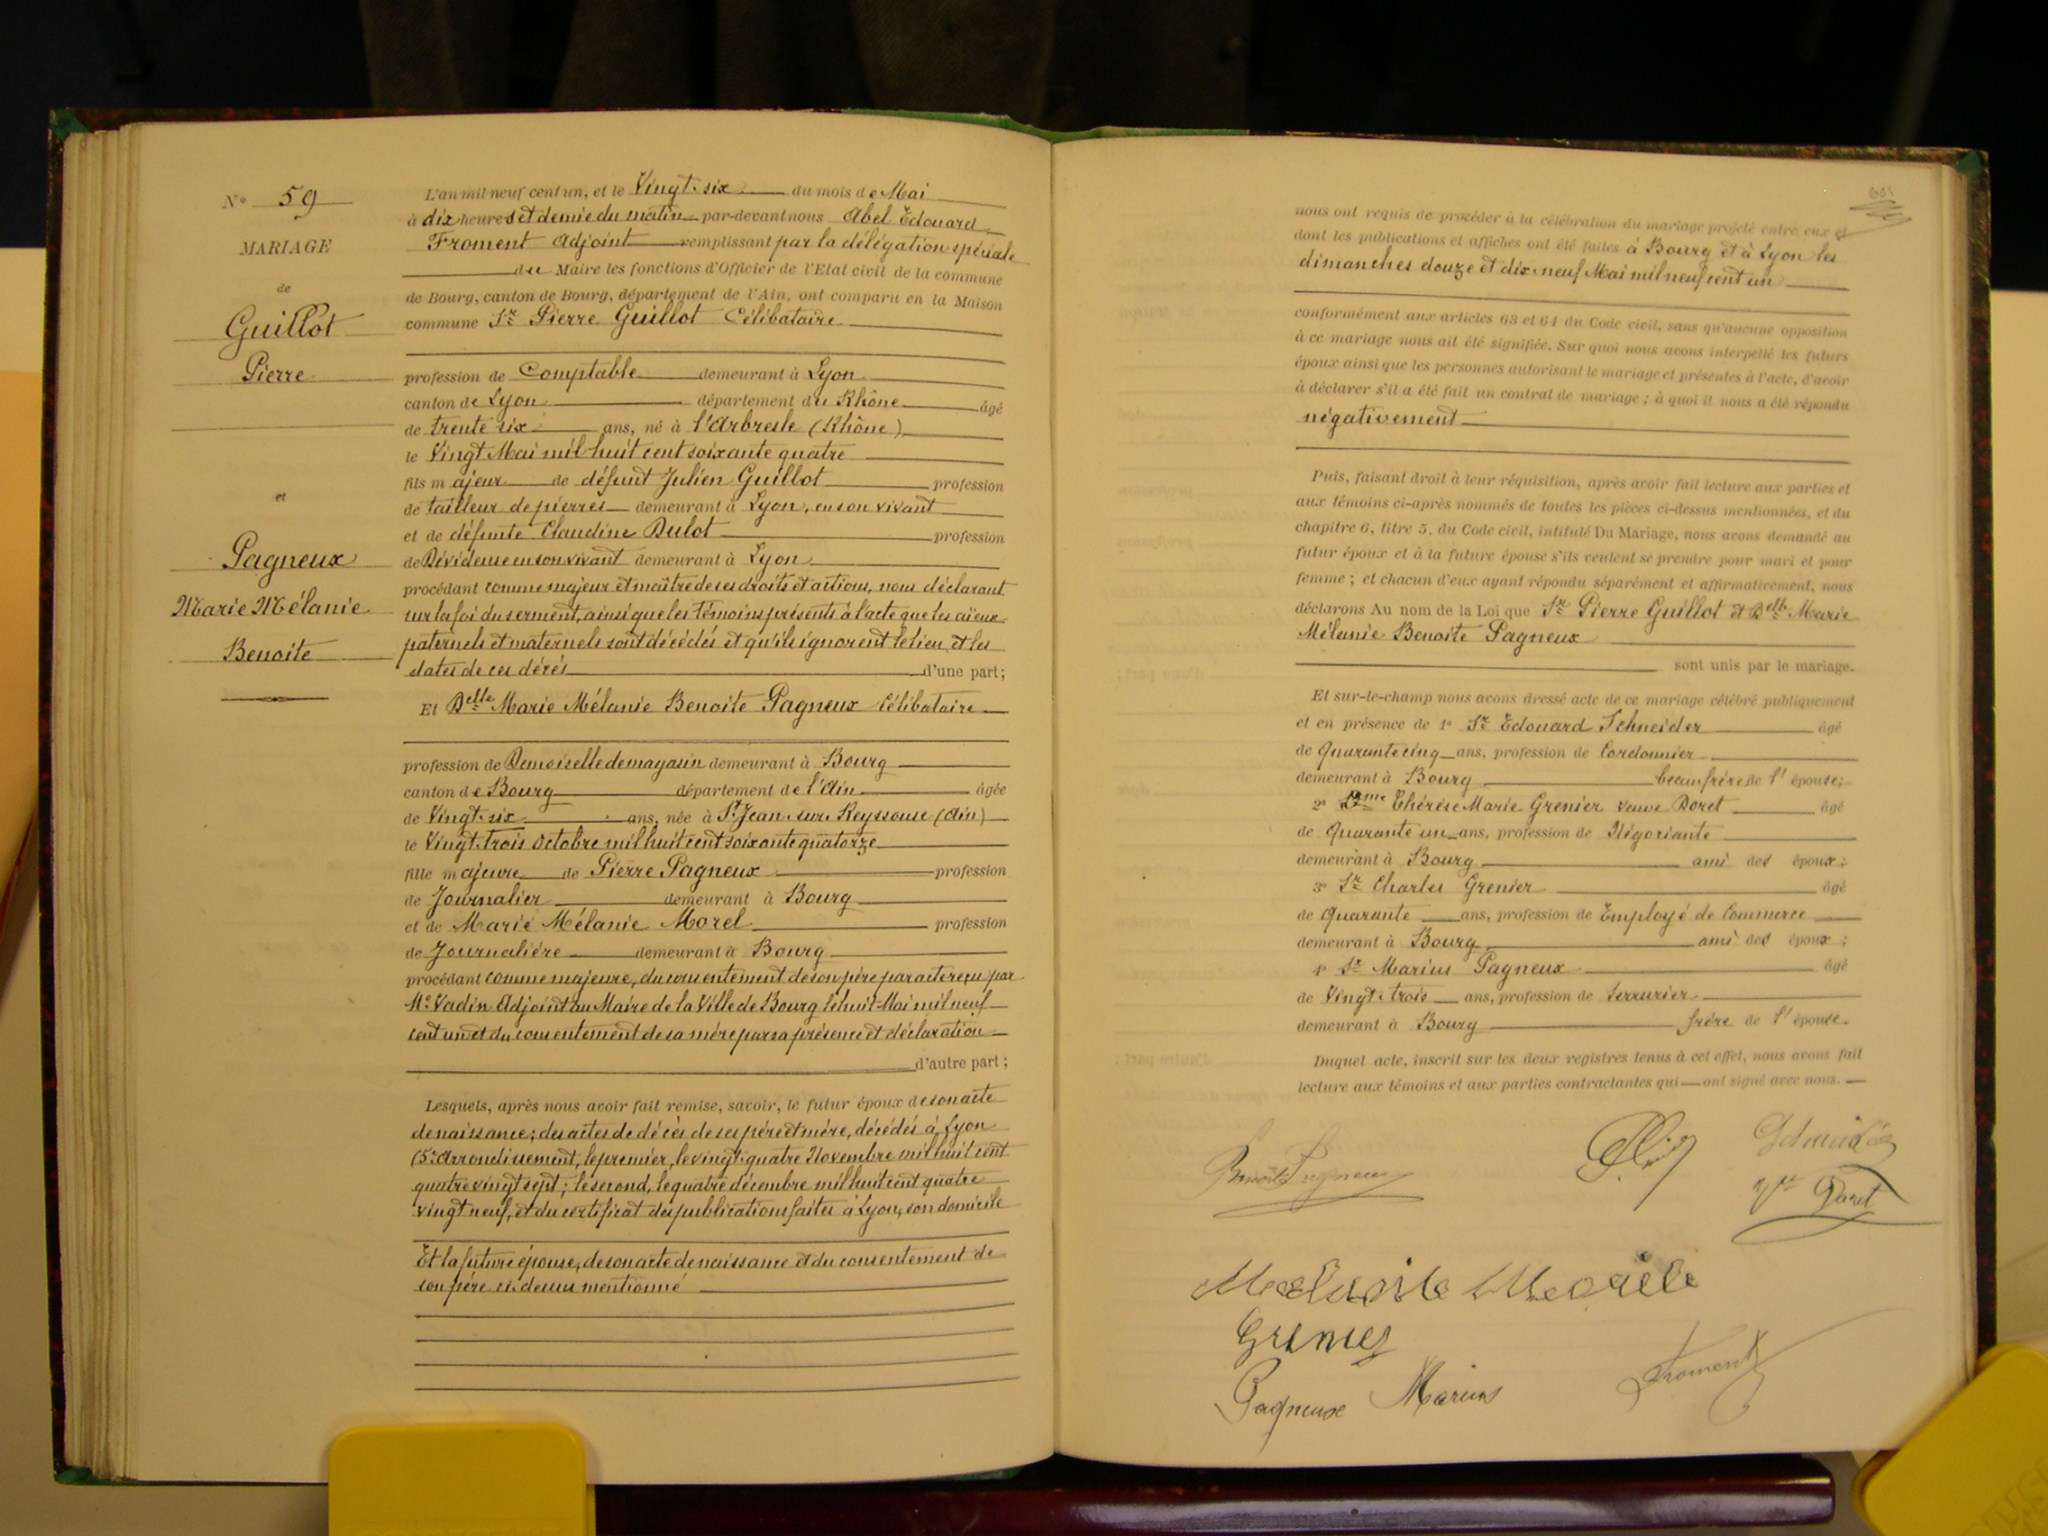 N° 59
MARIAGE
de
Guillot
Pierre
et
Pagneux
Marie Mélanie
Benoite
L'an mil neuf cent un, et le Vingt-six du mois de Mai
à dix heures et demie du matin par-devant nous Abel Edouard
Froment Adjoint remplissant par la délégation spéciale
du Maire les fonctions d'Officier de l'Etat civil de la commune
de Bourg, canton de Bourg, département de l'Ain, ont comparu en la Maison
commune Sr Pierre Guillot Célibataire
profession de Comptable demeurant à Lyon
canton de Lyon département du Rhône âgé
de trente six ans, né à l'Arbresle (Rhône)
le Vingt Mai mil huit cent soixante quatre
fils majeur de défunt Julien Guillot profession
de tailleur de pierres demeurant à Lyon, en son vivant
et de défunte Claudine Dulot profession
de Dévideuse en son vivant demeurant à Lyon
procédant comme majeur et maître de ses droits et actions, nous déclarant
sur la foi du serment, ainsi que les témoins présents à l'acte que les aïeux
paternels et maternels sont décédés et qu'ils ignorent le lieu et les
dates de ces décés d'une part;
Et Delle Marie Mélanie Benoite Pagneux Célibataire
profession de Demoiselle de magasin demeurant à Bourg
canton de Bourg département de l'Ain âgée
de Vingt-six ans, née à St Jean-sur-Reyssouse (Ain)
le Vingt-trois Octobre mil huit cent soixante quatorze
fille majeure de Pierre Pagneux profession
de Journalier demeurant à Bourg
et de Marie Mélanie Morel profession
de Journalière demeurant à Bourg
procédant comme majeure, du consentement de son père par acte reçu par
Mr Vadin Adjoint au Maire de la Ville de Bourg le huit Mai mil neuf
cent un et du consentement de sa mère par sa présence et déclaration
d'autre part;
Lesquels, après nous avoir fait remise, savoir, le futur époux de son acte
de naissance; des actes de décès de ses père et mère, décédés à Lyon
(5e Arrondissement, le premier, le vingt-quatre Novembre mil huit cent
quatre vingt sept; le second, le quatre décembre mil huit cent quatre
vingt neuf, et du certificat des publications faites à Lyon, son domicile
Et la future épouse, de son acte de naissance et du consentement de
son père ci-dessus mentionné
nous ont requis de procéder à la célébration du mariage projeté entre eux et
dont les publications et affiches ont été faites à Bourg et à Lyon les
dimanches douze et dix-neuf Mai mil neuf cent un
conformément aux articles 63 et 64 du Code civil, sans qu'aucune opposition
à ce mariage nous ait été signifiée. Sur quoi nous avons interpellé les futurs
époux ainsi que les personnes autorisant le mariage et présentes à l'acte, d'avoir
à déclarer s'il a été fait un contrat de mariage; à quoi il nous a été répondu
négativement
Puis, faisant droit à leur réquisition, après avoir fait lecture aux parties et
aux témoins ci-après nommés de toutes les pièces ci-dessus mentionnées, et du
chapitre 6, titre 5, du Code civil, intitulé Du Mariage, nous avons demandé au
futur époux et à la future épouse s'ils veulent se prendre pour mari et pour
femme; et chacun d'eux ayant répondu séparément et affirmativement, nous
déclarons Au nom de la Loi que Sr Pierre Guillot et Delle Marie
Mélanie Benoite Pagneux
sont unis par le mariage.
Et sur-le-champ nous avons dressé acte de ce mariage célébré publiquement
et en présence de 1° Sr Edouard Schneider âgé
de Quarante cinq ans, profession de Cordonnier
demeurant à Bourg beau frère de l'épouse;
2° Dme Thérèse Marie Grenier veuve Doret âgé
de Quarante un ans, profession de Négociante
demeurant à Bourg ami des époux;
3° Sr Charles Grenier âgé
de Quarante ans, profession de Employé de Commerce
demeurant à Bourg ami des époux;
4° Sr Marius Pagneux âgé
de Vingt-trois ans, profession de Serrurier
demeurant à Bourg frère de l'épouse.
Duquel acte, inscrit sur les deux registres tenus à cet effet, nous avons fait
lecture aux témoins et aux parties contractantes qui ont signé avec nous.
Benoite Pagneux
Schneider
Vve Doret
Grenier
Pagneux Marius
Froment